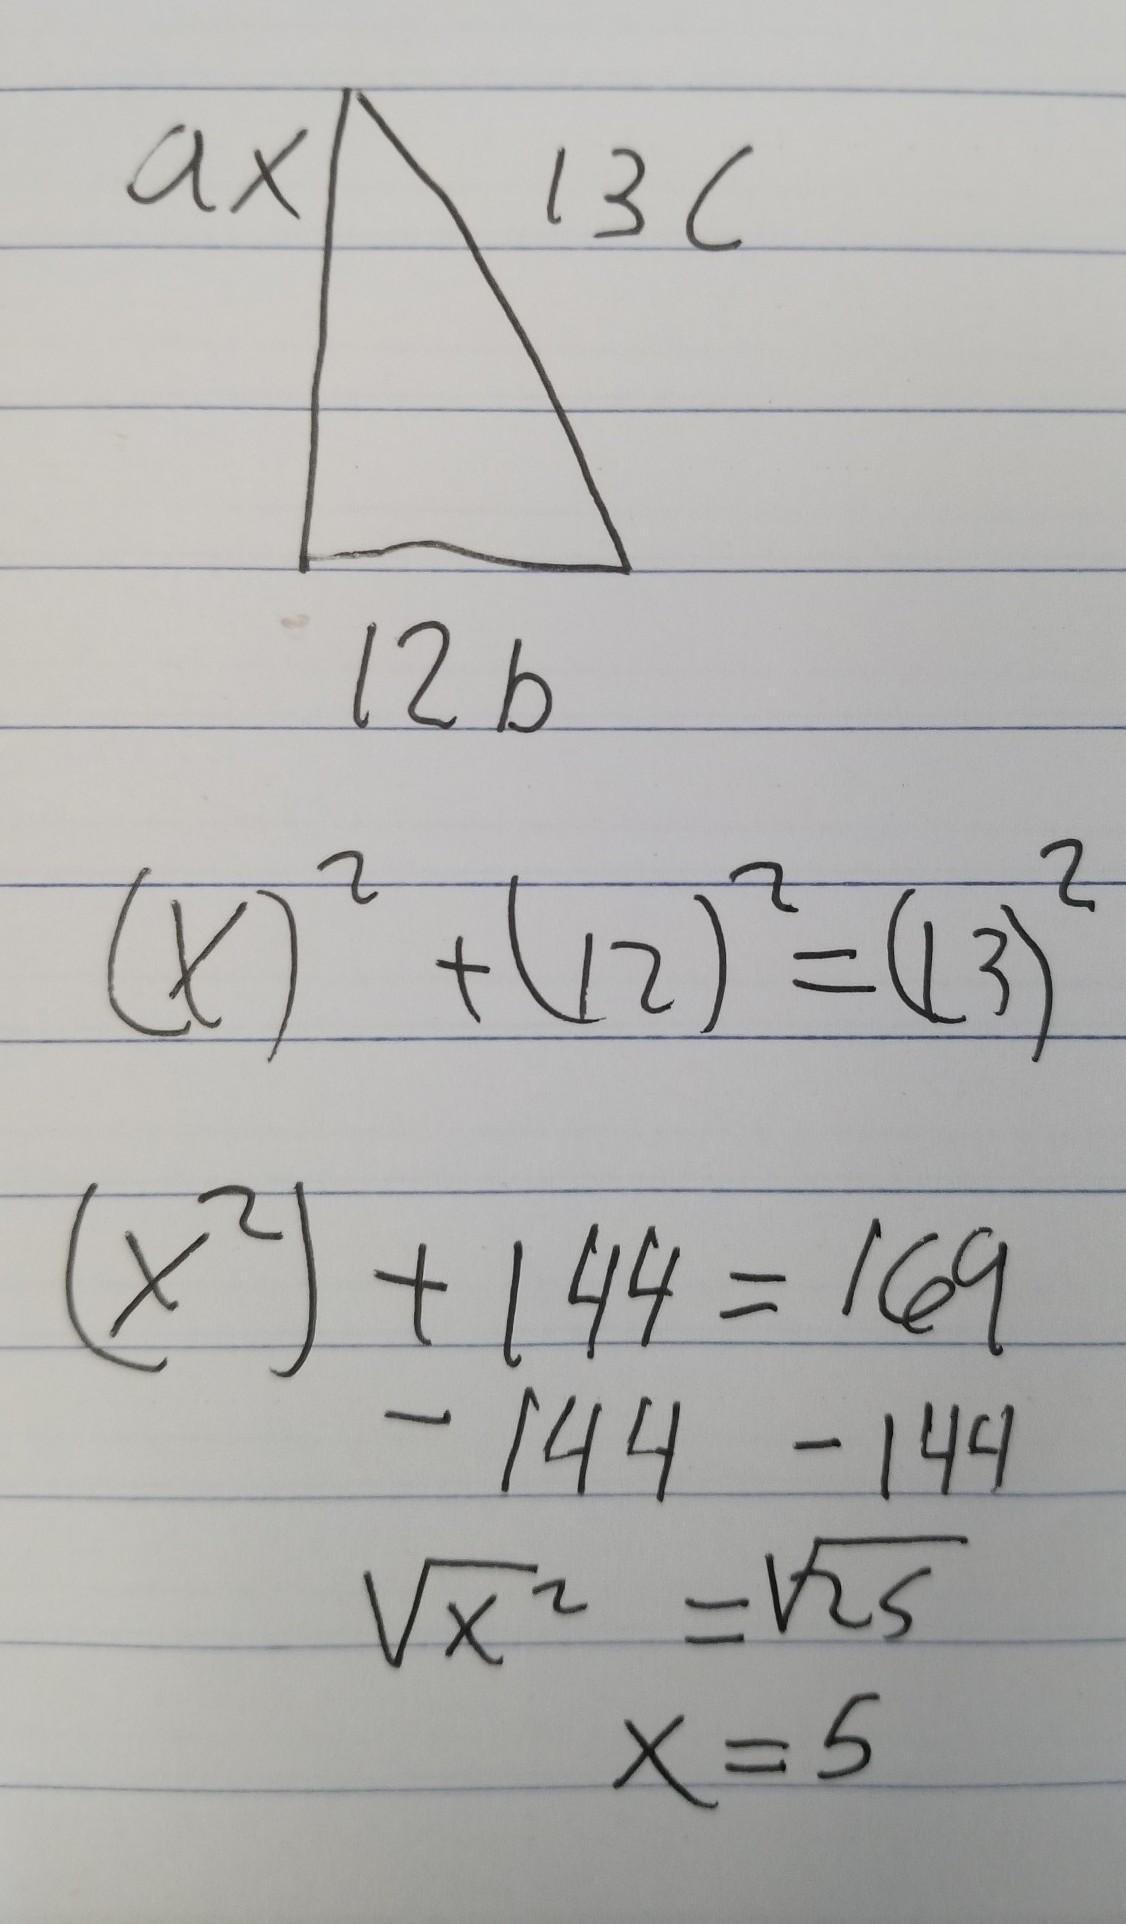 ax 13 c
12 b
(x)² + (12)² = (13)²
(x²) + 144 = 169
- 144 - 144
√x² = √25
x = 5